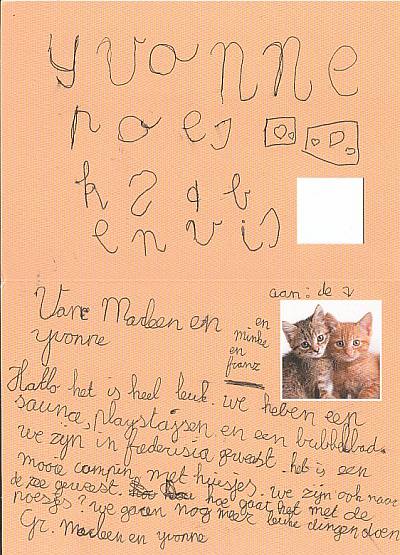 yvonne
poes
en vis
aan: de
Van Marleen en
yvonne
en
minke
en
franz
Hallo het is heel leuk. we heben een
sauna, playstajsen en een bubbelbad.
we zijn in frederisia geweest. het is een
mooie campin met huisjes. we zijn ook naar
de zee geweest. hoe gaat het met de
poesjes? we gaan nog meer leuke dingen doen
Gr. Marleen en yvonne